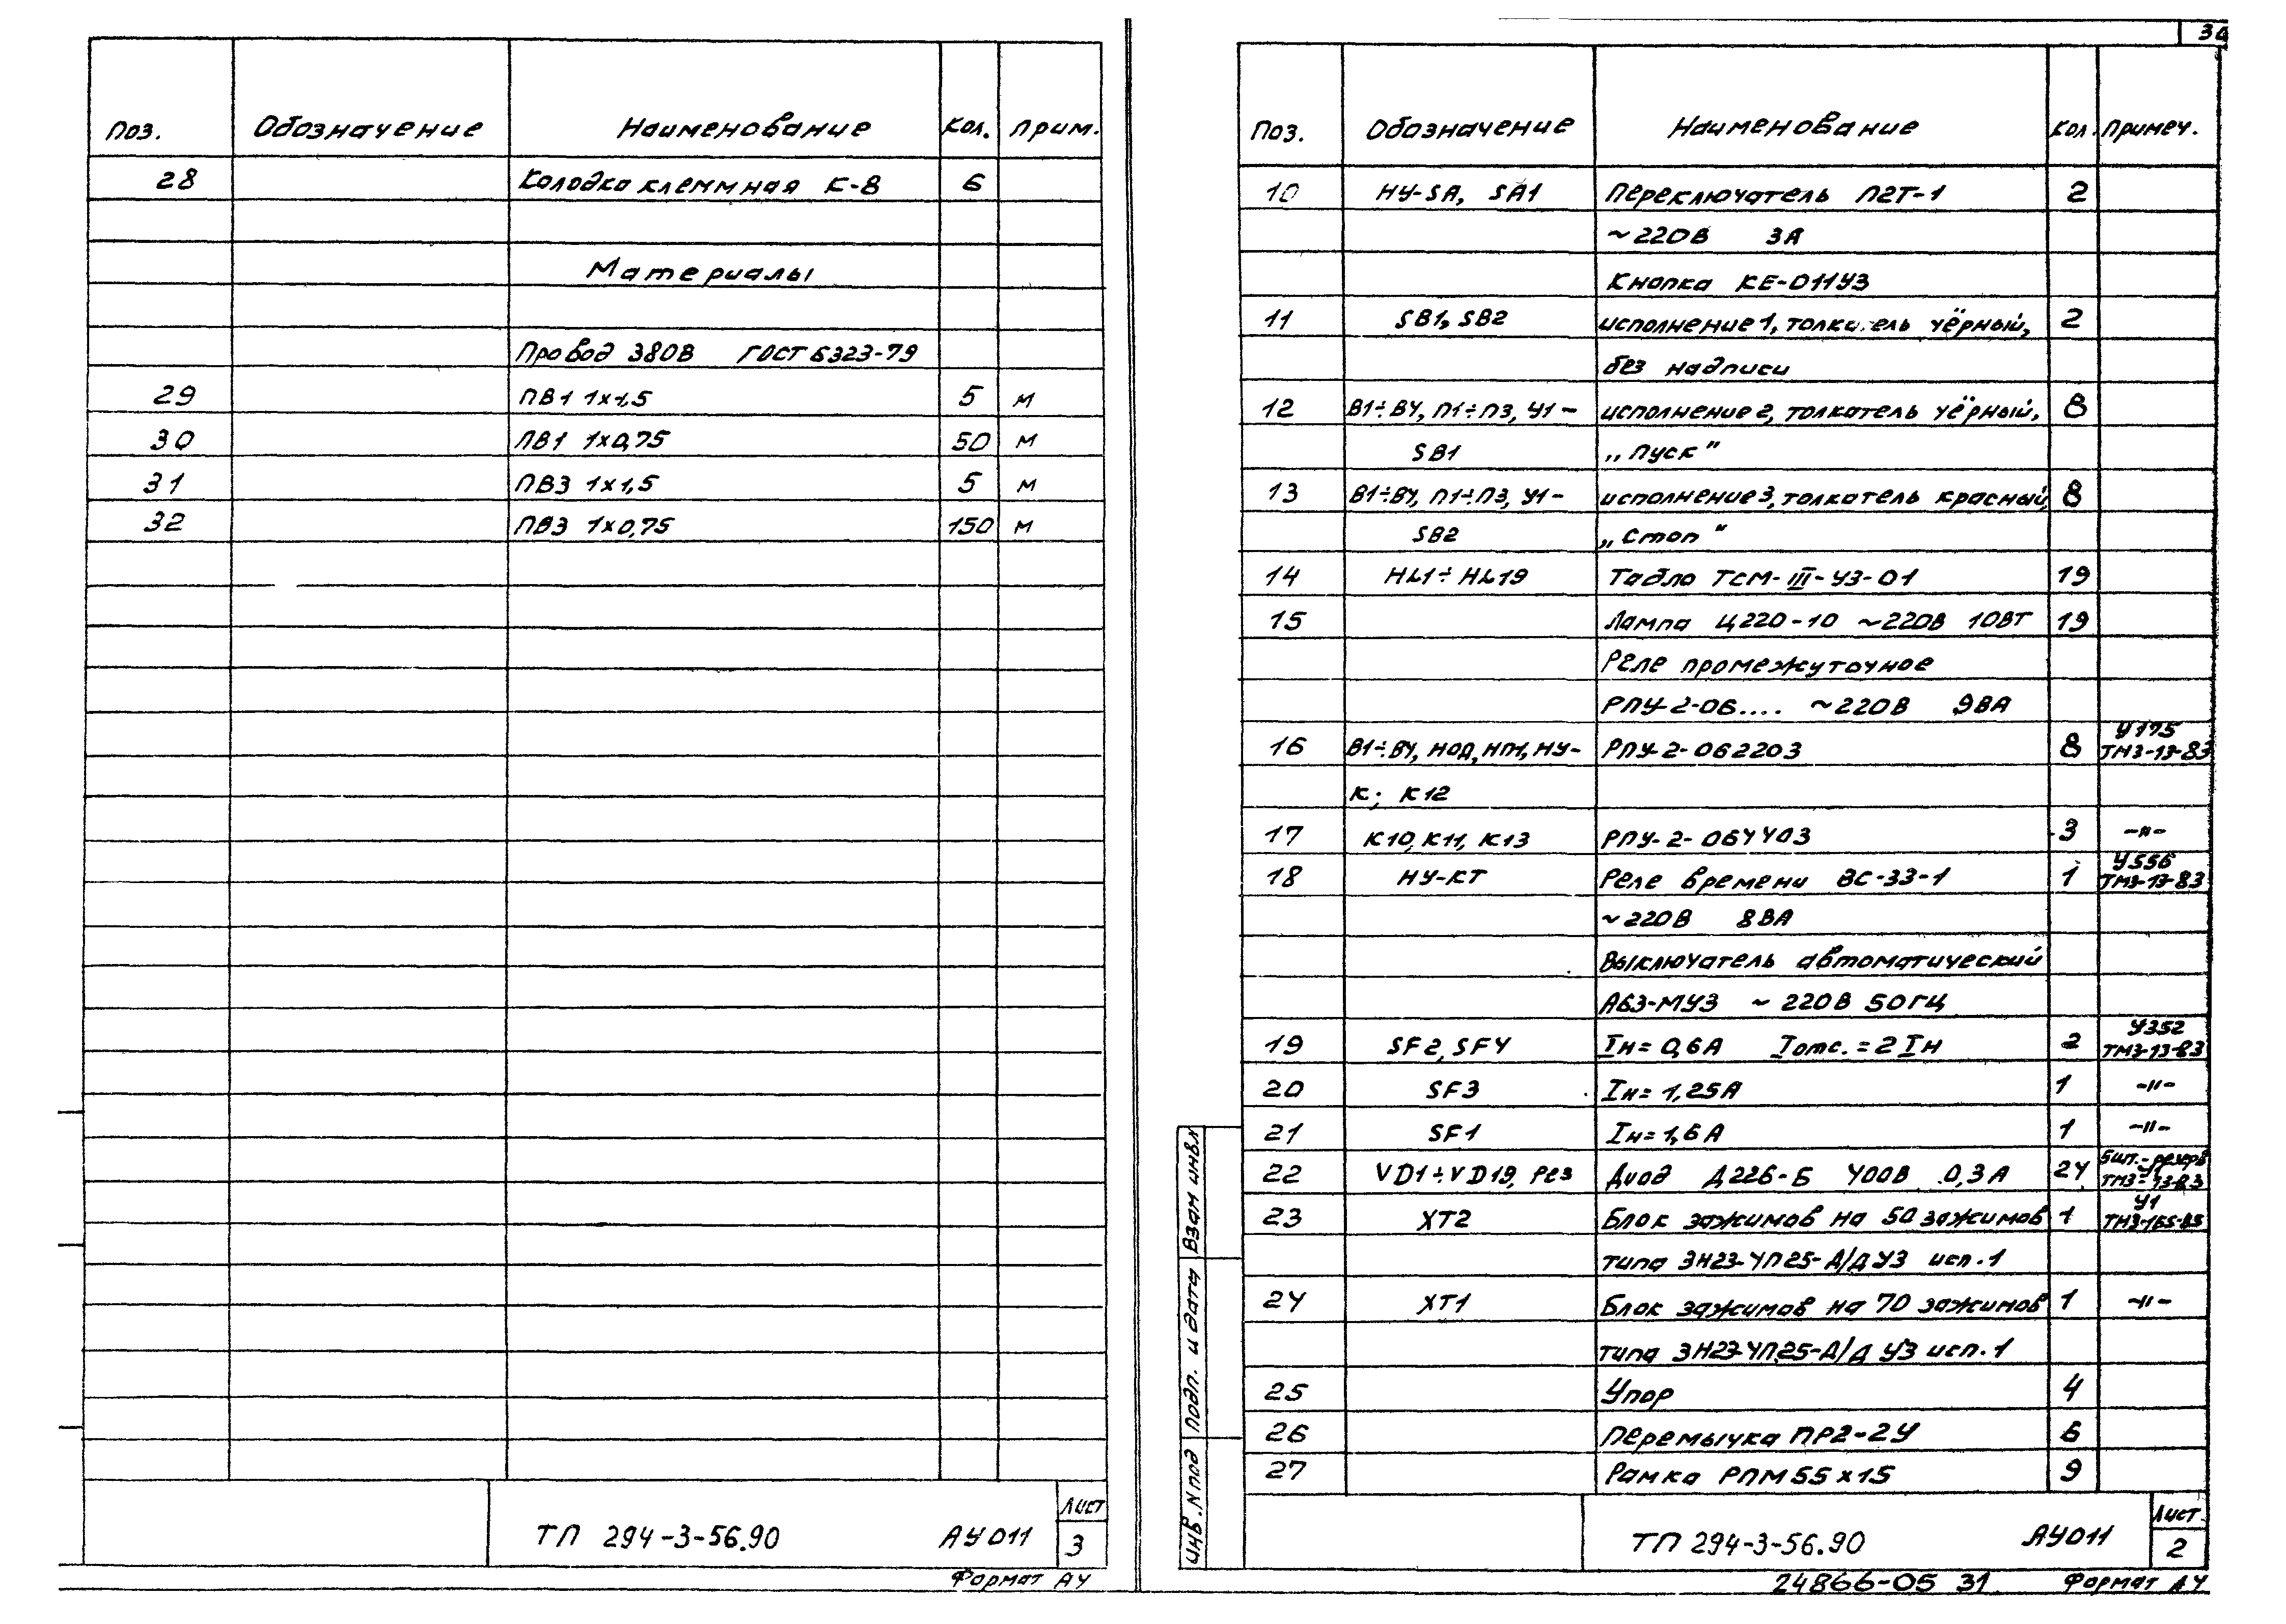 Поз. Обозначение Наименование Кол. Прим.
28 Колодка клеммная К-8 6
Материалы
Провод 380В ГОСТ 6323-79
29 ПВ1 1х1,5 5 м
30 ПВ1 1х0,75 50 м
31 ПВ3 1х1,5 5 м
32 ПВ3 1х0,75 150 м
ТП 294-3-56.90 АУ011
Лист
3
Формат А4
Поз. Обозначение Наименование Кол. Примеч.
10 НУ-SA, SA1 Переключатель П2Т-1 2
~220В 3А
Кнопка КЕ-011У3
11 SB1, SB2 исполнение 1, толкатель чёрный, 2
без надписи
12 В1÷В4, П1÷П3, У1- исполнение 2, толкатель чёрный, 8
SB1 „Пуск"
13 В1÷В4, П1÷П3, У1- исполнение 3, толкатель красный, 8
SB2 „Стоп"
14 HL1÷HL19 Табло ТСМ-III-У3-01 19
15 Лампа Ц220-10 ~220В 10ВТ 19
Реле промежуточное
РПУ-2-06.... ~220В 9ВА
У175
16 В1÷В4, НОД, НП1, НУ- РПУ-2-062203 8 ТМ3-13-83
К; К12
17 К10, К11, К13 РПУ-2-064403 3 -"-
У556
18 НУ-КТ Реле времени ВС-33-1 1 ТМ3-13-83
~220В 8ВА
Выключатель автоматический
А63-МУ3 ~220В 50ГЦ
У352
19 SF2, SF4 Iн=0,6А Iотс.=2Iн 2 ТМ3-13-83
20 SF3 Iн=1,25А 1 -"-
21 SF1 Iн=1,6А 1 -"-
5шт.-резерв
22 VD1÷VD19, рез Диод Д226-Б 400В 0,3А 24 ТМ3-13-83
У1
23 ХТ2 Блок зажимов на 50 зажимов 1 ТМ3-165-85
типа ЗН23-4П25-Д/Д У3 исп.1
24 ХТ1 Блок зажимов на 70 зажимов 1 -"-
типа ЗН23-4П25-Д/Д У3 исп.1
25 Упор 4
26 Перемычка ПР2-24 6
27 Рамка РПМ55х15 9
ТП 294-3-56.90 АУ011
Лист
2
24866-05 31 Формат А4
Инв.N под
Подп. и дата
Взам инв.N